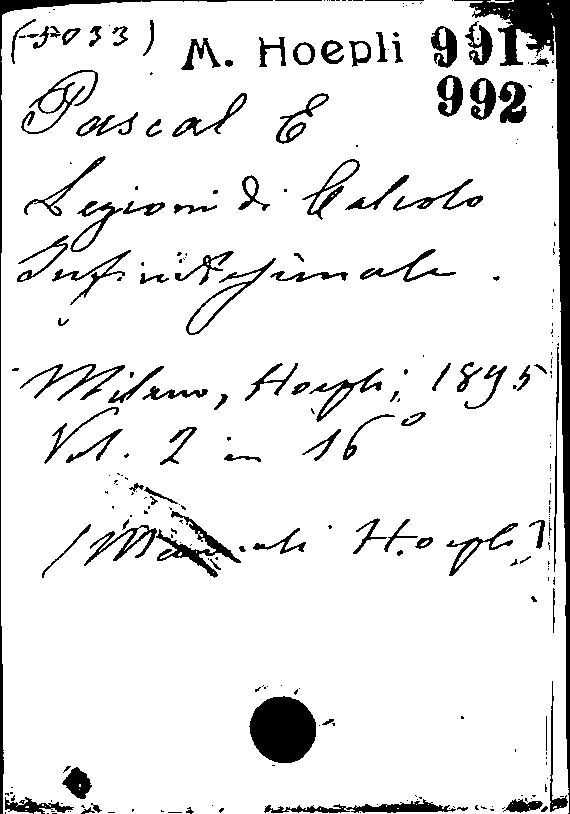 (5033) M. Hoepli 991-
992
Pascal E
Lezioni di Calcolo
Infinitesimale.
Milano, Hoepli, 1895
Vol. 2 in 16°
(Manuali Hoepli)